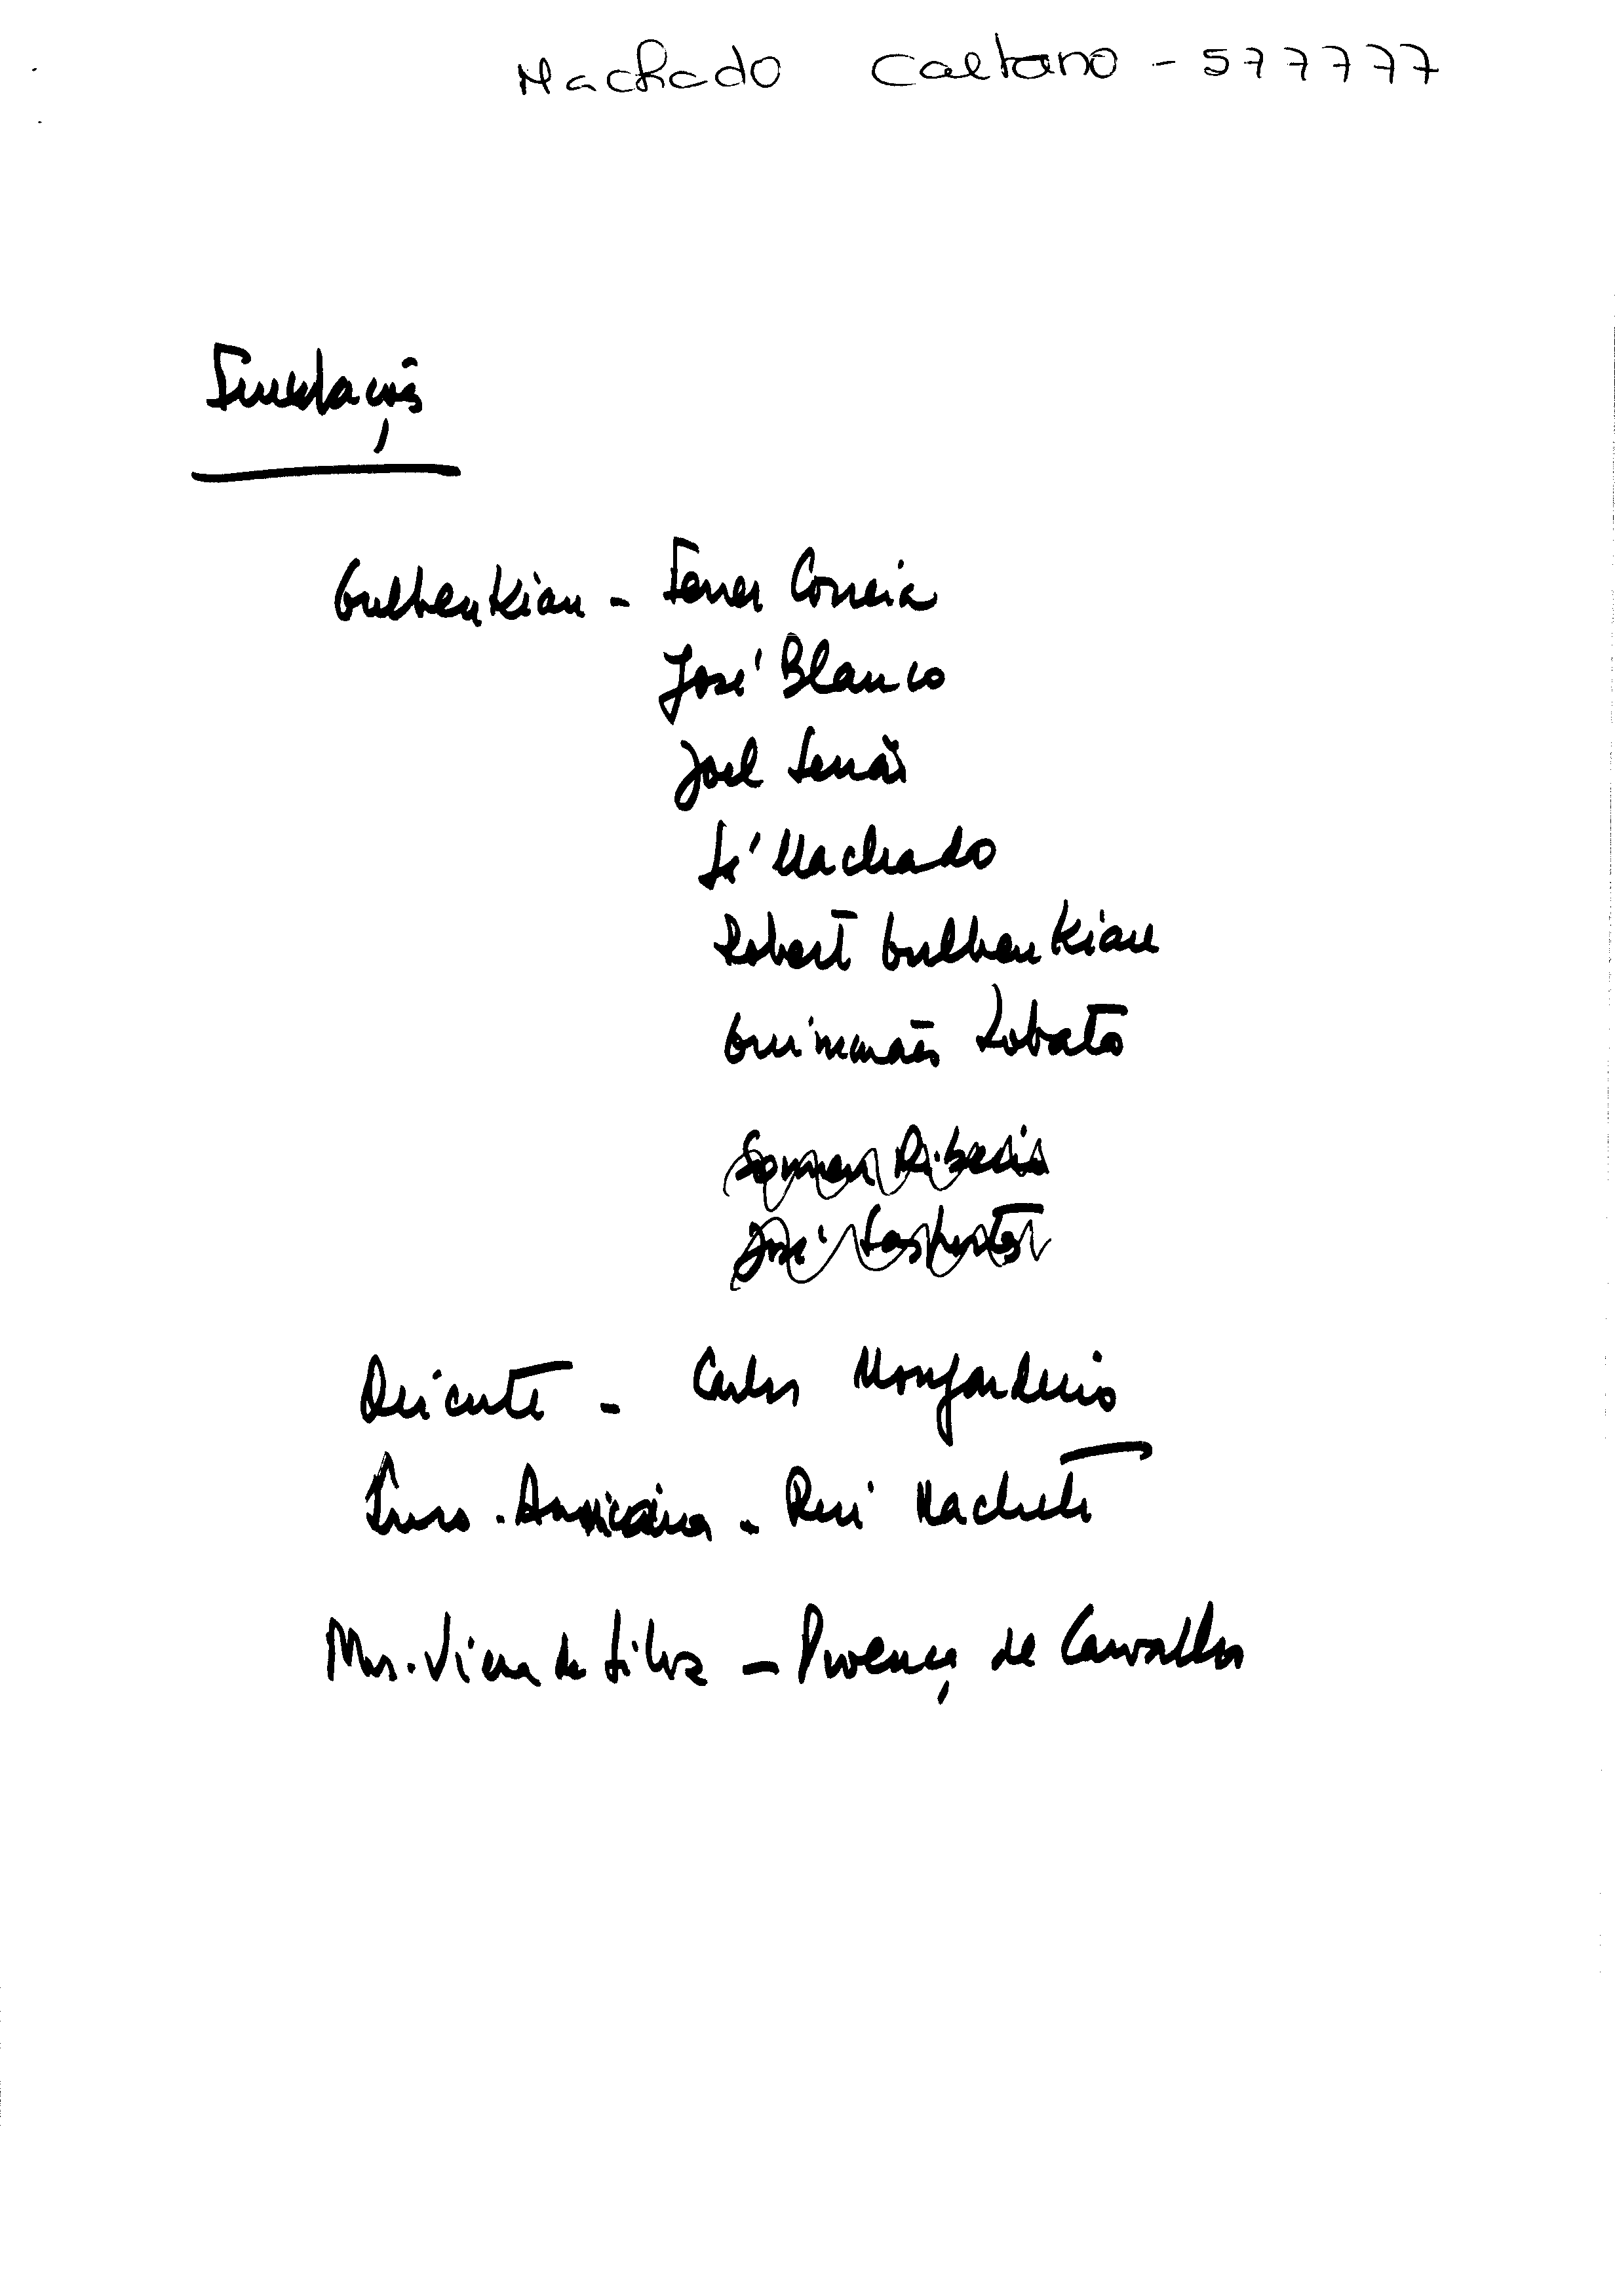 Machado Caetano - 577777
Fundações
Gulbenkian - Ferrer Correia
José Blanco
Joel Serrão
Sá Machado
Robert Gulbenkian
Guimarães Lobato
Sommer Ribeiro
José
Oriente - Carlos Monjardino
Luso-Americana - Rui Machete
Viera da Silva - Proença de Carvalho